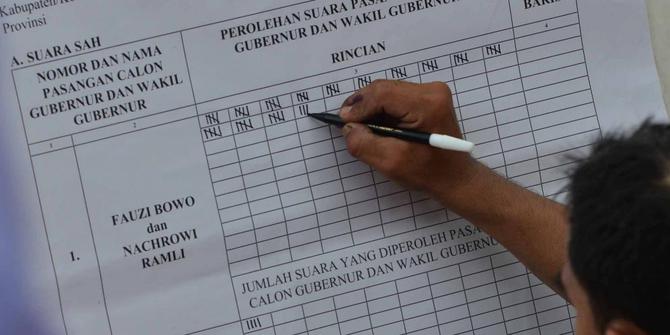 Kabupaten/Ko
Provinsi
A. SUARA SAH
NOMOR DAN NAMA
PASANGAN CALON
GUBERNUR DAN WAKIL
GUBERNUR
PEROLEHAN SUARA PASA
GUBERNUR DAN WAKIL GUBERNUR
RINCIAN
BARIS
1
2
3
4
1.
FAUZI BOWO
dan
NACHROWI
RAMLI
JUMLAH SUARA YANG DIPEROLEH PASA
CALON GUBERNUR DAN WAKIL GUBERNU